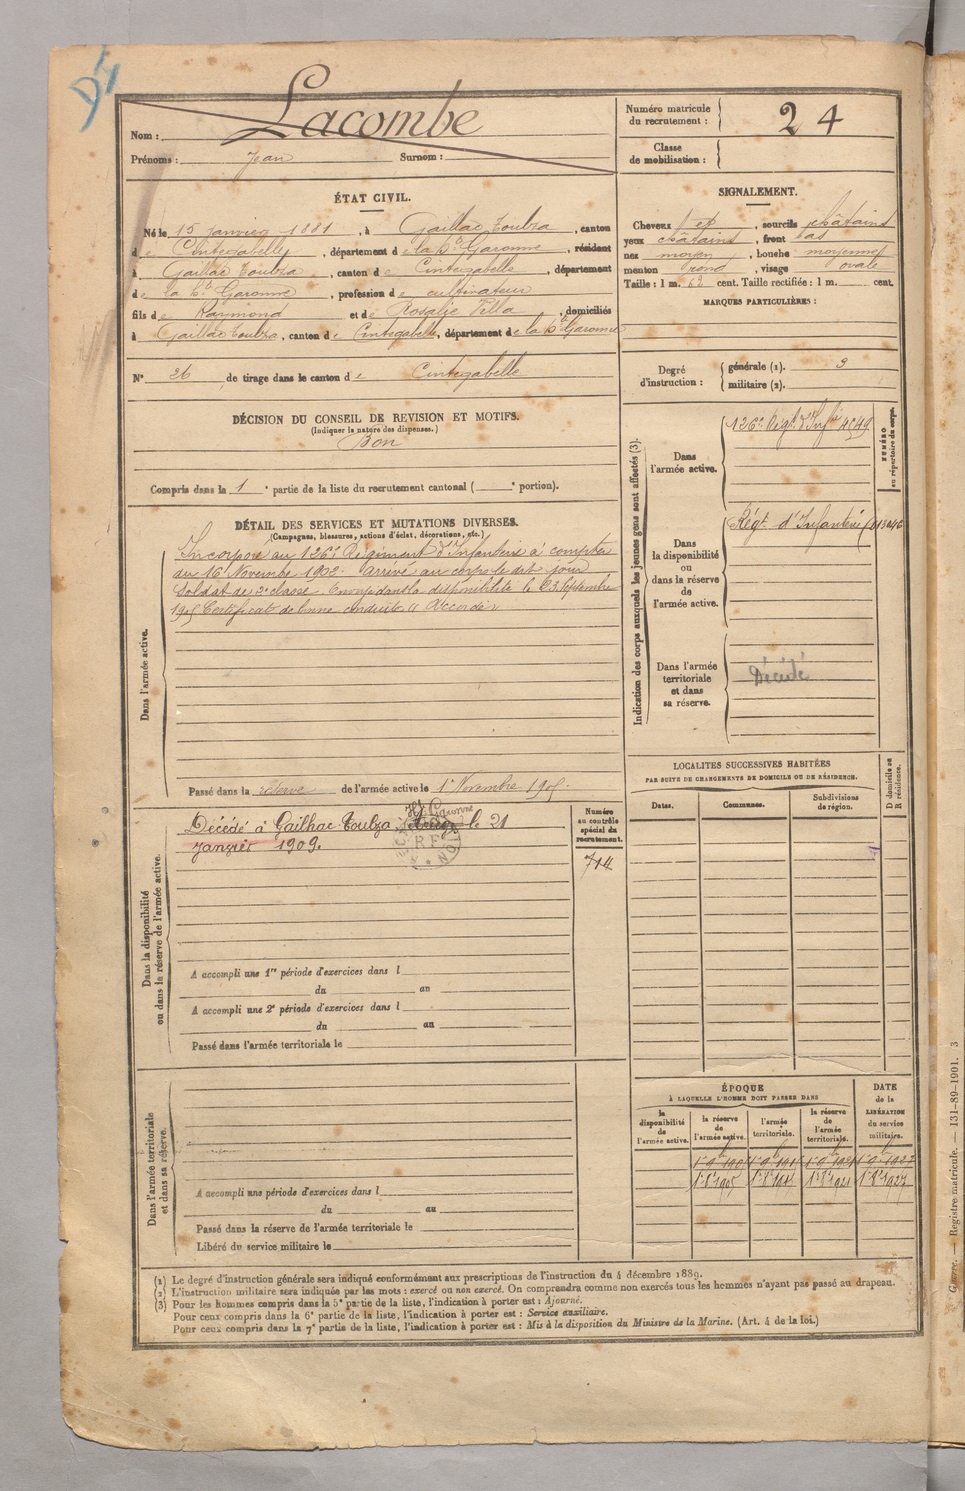 Nom : Lacombe
Prénoms : Jean Surnom :
Numéro matricule du recrutement : 24
Classe de mobilisation :
ÉTAT CIVIL.
Né le 15 janvier 1881, à Gaillac Toulza, canton
de Cintegabelle, département de la Hte Garonne, résidant
à Gaillac Toulza, canton de Cintegabelle, département
de la Hte Garonne, profession de cultivateur
fils de Raymond et de Rosalie Villa, domiciliés
à Gaillac Toulza, canton de Cintegabelle, département de la Hte Garonne
N° 26 de tirage dans le canton de Cintegabelle
SIGNALEMENT.
Cheveux et, sourcils châtains
yeux châtains, front bas
nez moyen, bouche moyenne
menton rond, visage ovale
Taille : 1 m. 62 cent. Taille rectifiée : 1 m. cent.
MARQUES PARTICULIÈRES :
Degré d'instruction : générale (1). 3
militaire (2).
DÉCISION DU CONSEIL DE REVISION ET MOTIFS.
(Indiquer la nature des dispenses.)
Bon
Compris dans la 1e partie de la liste du recrutement cantonal ( e portion).
DÉTAIL DES SERVICES ET MUTATIONS DIVERSES.
(Campagnes, blessures, actions d'éclat, décorations, etc.)
Dans l'armée active.
Incorporé au 126e Régiment d'Infanterie à compter
du 16 Novembre 1902. arrivé au corps le dit jour
Soldat de 2e classe. Envoyé dans la disponibilité le 23 Septembre
1905 Certificat de bonne conduite "Accordé"
Passé dans la réserve de l'armée active le 1er Novembre 1905.
Indication des corps auxquels les jeunes gens sont affectés (3).
NUMÉRO au répertoire du corps.
Dans l'armée active.
126e Régt d'Infie 4549
Dans la disponibilité ou dans la réserve de l'armée active.
Régt d'Infanterie
Dans l'armée territoriale et dans sa réserve.
Décédé
Dans la disponibilité ou dans la réserve de l'armée active.
Hte Garonne
Décédé à Gailhac-Toulza le 21
janvier 1909.
RF
Numéro au contrôle spécial du recrutement.
714
A accompli une 1re période d'exercices dans l
du au
A accompli une 2e période d'exercices dans l
du au
Passé dans l'armée territoriale le
LOCALITES SUCCESSIVES HABITÉES
PAR SUITE DE CHANGEMENTS DE DOMICILE OU DE RÉSIDENCE.
Dates. Communes. Subdivisions de région. D domicile ou R résidence.
Dans l'armée territoriale et dans sa réserve.
A accompli une période d'exercices dans l
du au
Passé dans la réserve de l'armée territoriale le
Libéré du service militaire le
ÉPOQUE
À LAQUELLE L'HOMME DOIT PASSER DANS
la disponibilité de l'armée active. la réserve de l'armée active. l'armée territoriale. la réserve de l'armée territoriale. DATE de la LIBÉRATION du service militaire.
(1) Le degré d'instruction générale sera indiqué conformément aux prescriptions de l'instruction du 4 décembre 1889.
(2) L'instruction militaire sera indiquée par les mots : exercé ou non exercé. On comprendra comme non exercés tous les hommes n'ayant pas passé au drapeau.
(3) Pour les hommes compris dans la 5e partie de la liste, l'indication à porter est : Ajourné.
Pour ceux compris dans la 6e partie de la liste, l'indication à porter est : Service auxiliaire.
Pour ceux compris dans la 7e partie de la liste, l'indication à porter est : Mis à la disposition du Ministre de la Marine. (Art. 4 de la loi.)
Guerre. — Registre matricule. — 131-89-1901. 3